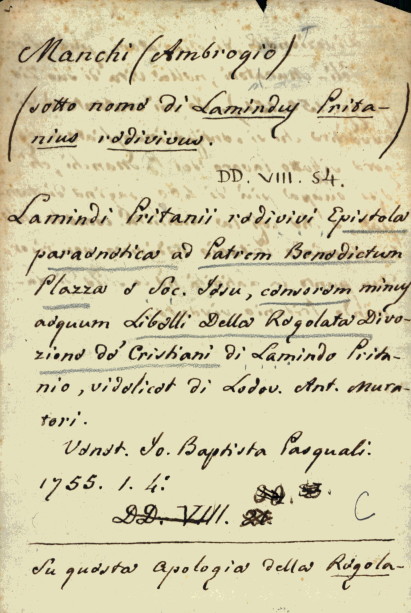 Manchi (Ambrogio)
(sotto nome di Lamindus Prita-
nius redivivus.)
DD. VIII. 54.
Lamindi Pritanii redivivi Epistola
paraenetica ad Patrem Benedictum
Plazza e Soc. Iesu, censorem minus
aequum Libelli Della Regolata Divo-
zione de' Cristiani di Lamindo Prita-
nio, videlicet di Lodov. Ant. Mura-
tori.
Venet. Jo. Baptista Pasquali.
1755. 1. 4°
DD. VIII.
C
Su questa Apologia della Regola-